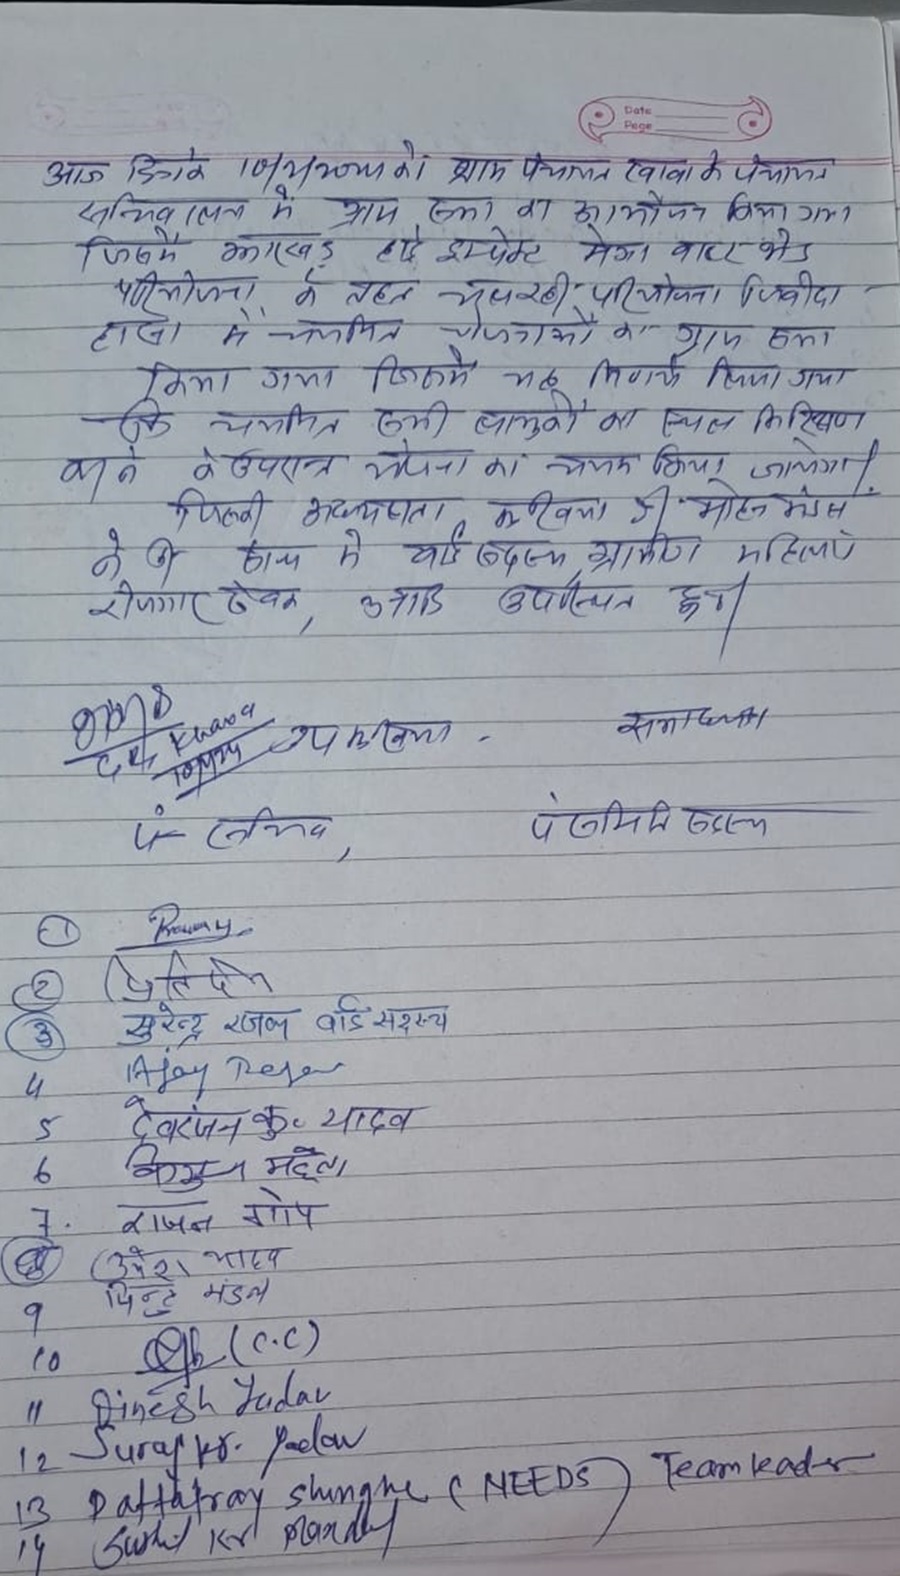 Date
Page
आज दिनांक को ग्राम पंचायत खावा के पंचायत
सचिवालय में ग्राम सभा का आयोजन किया गया
जिसमें झारखंड हाई इम्पेक्ट मेगा वाटर शेड
परियोजना के तहत परियोजना
में चयनित योजनाओं का ग्राम सभा
किया गया जिसमें यह निर्णय लिया गया
कि चयनित सभी का स्थल निरिक्षण
करने के उपरान्त योजना का चयन किया जायेगा।
जिसकी अध्यक्षता मुखिया श्री मोहन
ने की साथ में वार्ड सदस्य ग्रामीण महिलाएं
रोजगार सेवक, आदि उपस्थित हुए।
Khawa उप मुखिया . सभाध्यक्ष
पं सचिव, पं समिति सदस्य
1
2
3 सुरेन्द्र राजक वार्ड सदस्य
4 Ajay
5 देवरंजन कु० यादव
6 महता
7. राजन गोप
8 उमेश यादव
9 पिन्टु मंडल
10 (C.C)
11 Dinesh Yadav
12 Suraj kr. Yadav
13 Dattatray Shinghe (NEEDS) Team leader
14 Sushil Kr Mandal